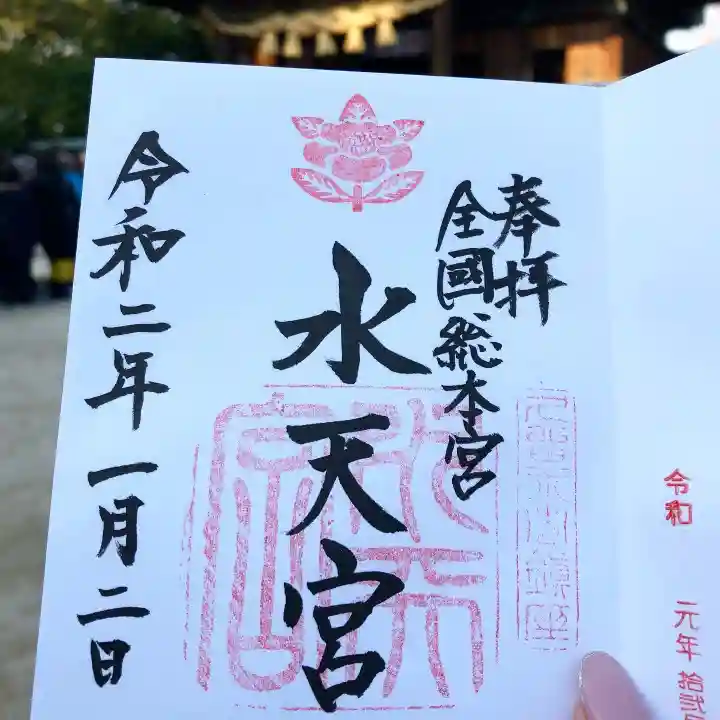 令和
元年 拾弐
奉拝
全國総本宮
水天宮
令和二年一月二日